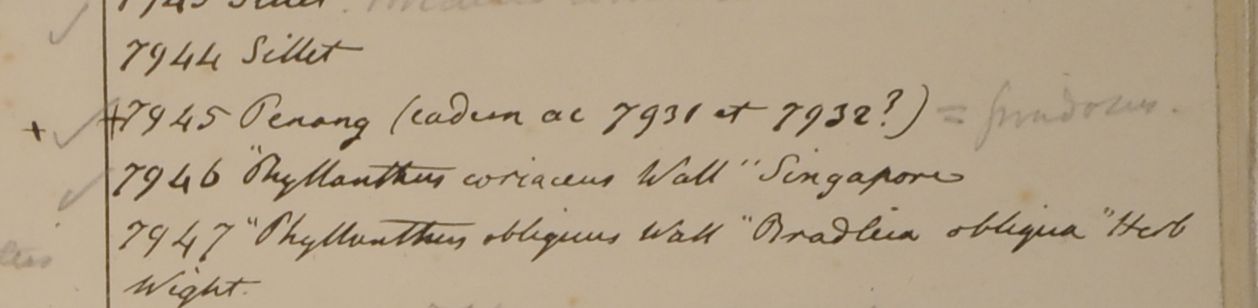 7943 Sillet
7944 Sillet
+ +7945 Penang (eadem ac 7931 et 7932?) = frondosus.
7946 "Phyllanthus coriaceus Wall" Singapore
7947 "Phyllanthus obliquus Wall "Bradleia obliqua" Herb
Wight.